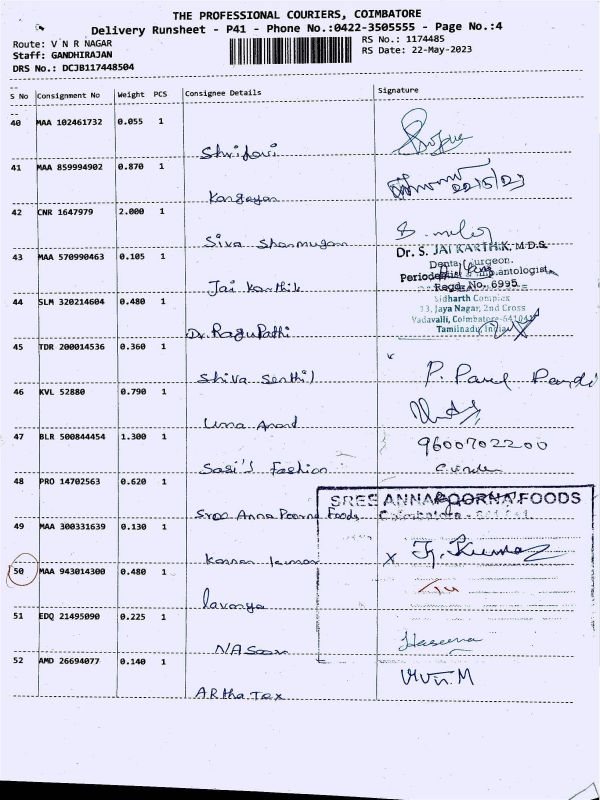 THE PROFESSIONAL COURIERS, COIMBATORE
Delivery Runsheet - P41 - Phone No.:0422-3505555 - Page No.:4
Route: V N R NAGAR
RS No.: 1174485
Staff: GANDHIRAJAN
RS Date: 22-May-2023
DRS No.: DCJB117448504
S No Consignment No Weight PCS Consignee Details Signature
40 MAA 102461732 0.055 1
41 MAA 859994902 0.870 1
22/5/23
42 CNR 1647979 2.000 1
Siva Shanmugam
43 MAA 570990463 0.105 1
Dr. S. JAI KARTHIK, M.D.S.
Dental Surgeon.
Periodontist & Implantologist
Regd. No. 6995
Jai Karthik
44 SLM 320214604 0.480 1
Sidharth Complex
33, Jaya Nagar, 2nd Cross
Vadavalli, Coimbatore-641041
Tamilnadu, India
Dr. Ragupathi
45 TDR 200014536 0.360 1
Shiva Senthil
P. Paul Pandi
46 KVL 52880 0.790 1
Uma Anand
47 BLR 500844454 1.300 1
9600702200
Sasi's Fashion
48 PRO 14702563 0.620 1
SREE ANNAPOORNA FOODS
Sree Anna Poorna Foods
49 MAA 300331639 0.130 1
Kannan Kumar
x
50 MAA 943014300 0.480 1
lavanya
51 EDQ 21495090 0.225 1
Haseena
52 AMD 26694077 0.140 1
M
ARtha Tex